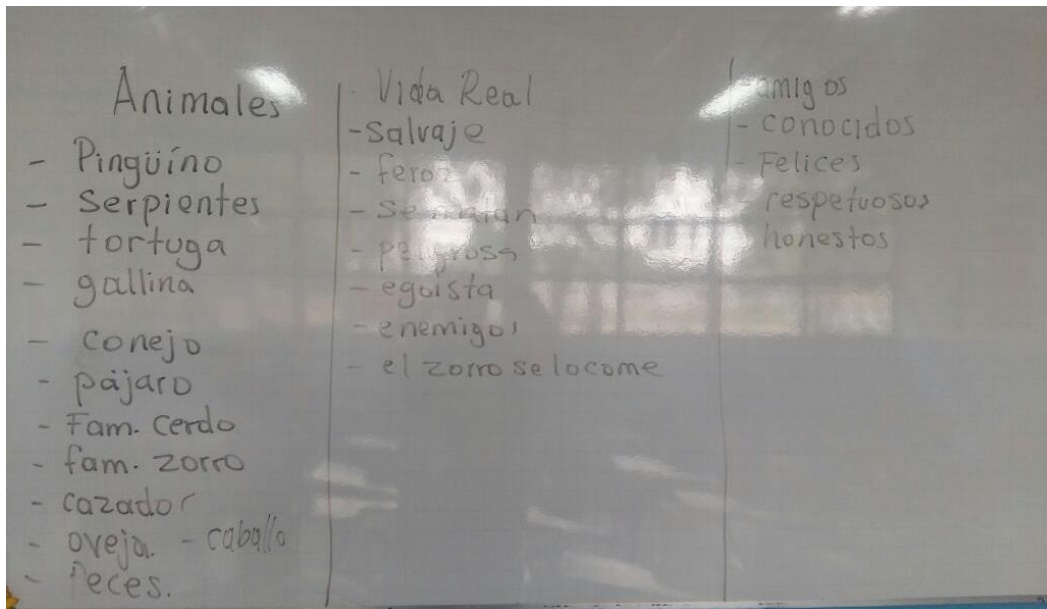 Animales
- Pingüíno
- Serpientes
- tortuga
- gallina
- conejo
- pájaro
- Fam. Cerdo
- fam. zorro
- cazador
- oveja. - caballo
- Peces.
Vida Real
- Salvaje
- feroz
- Se
- egoísta
- enemigos
- el zorro se lo come
- amigos
- conocidos
- Felices
respetuosos
honestos